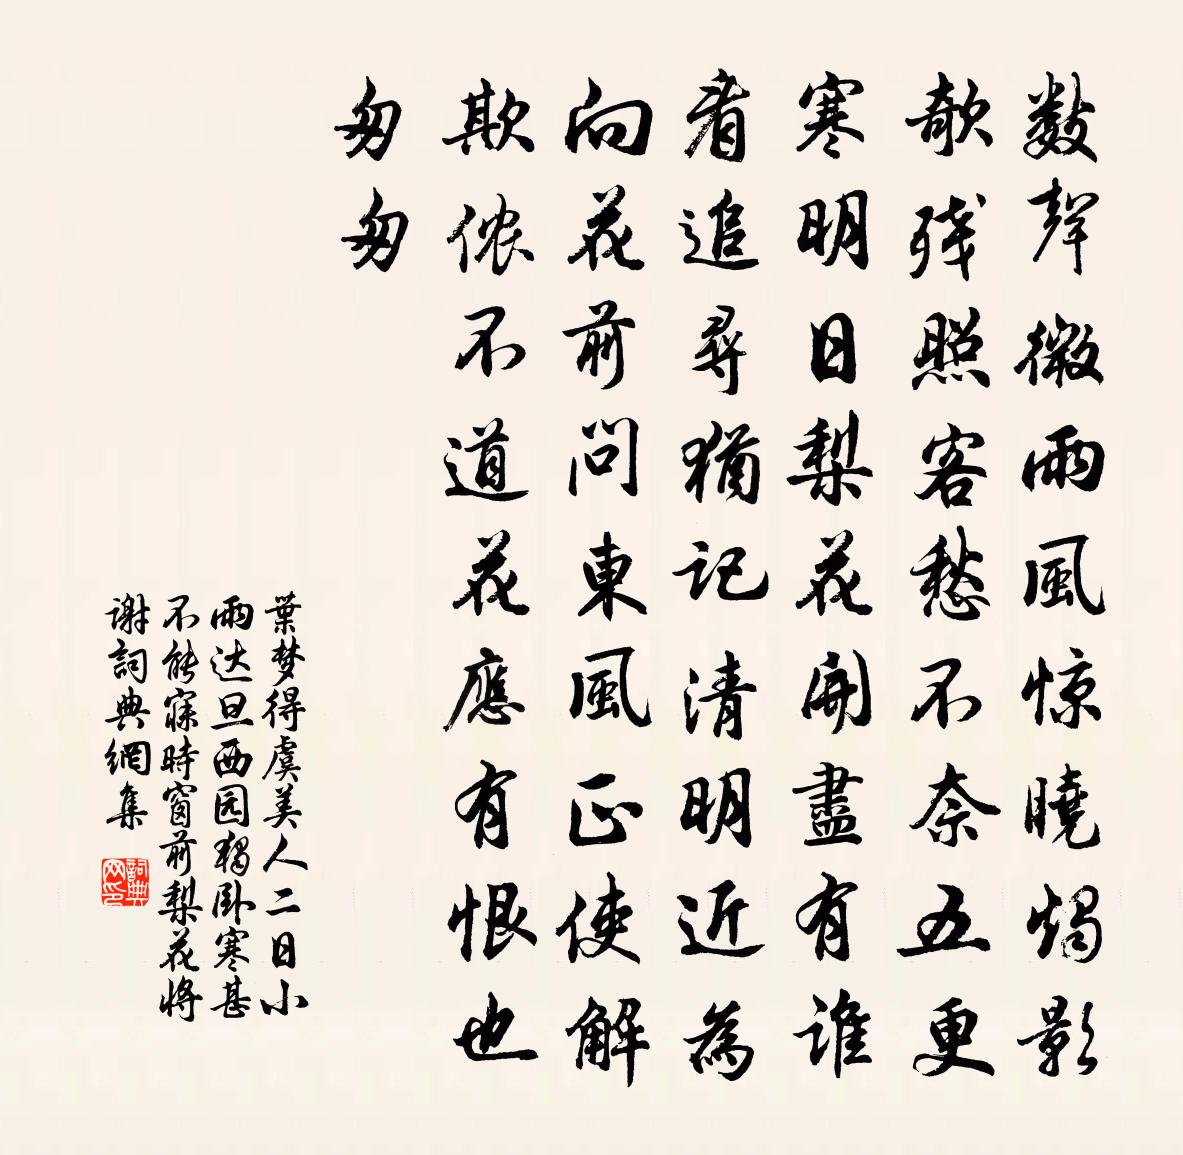 數聲微雨風惊曉燭影
欹殘照客愁不奈五更
寒明日梨花開盡有誰
看追尋猶記清明近為
向花前問東風正使解
欺侬不道花應有恨也
匆匆
葉梦得虞美人二日小
雨达旦西园獨卧寒甚
不能寐時窗前梨花將
謝詞典網集
詞典网印